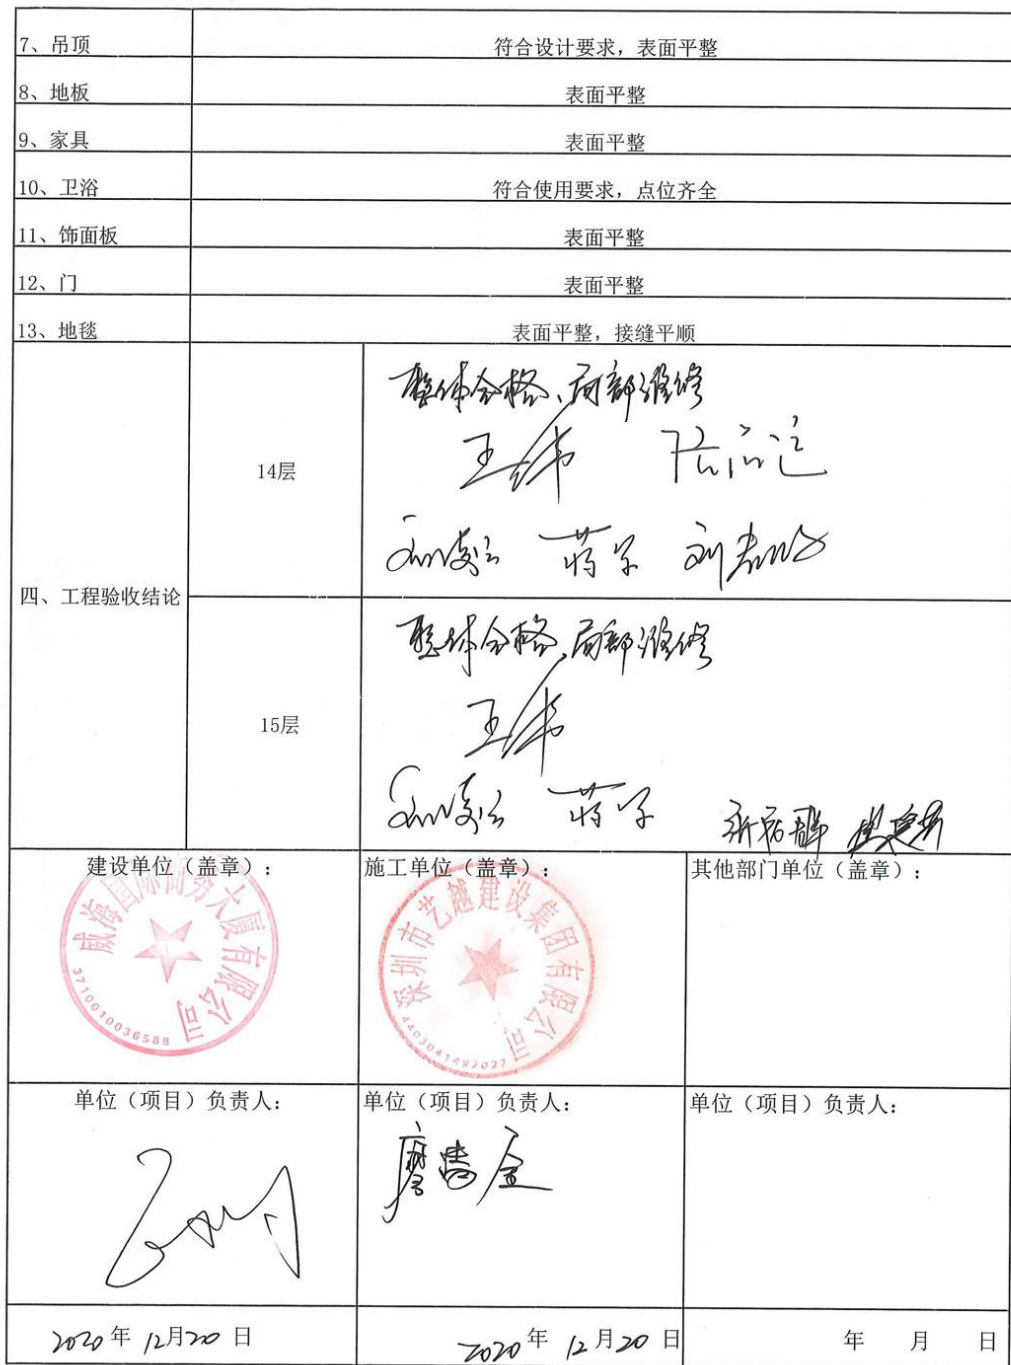 7、吊顶 符合设计要求，表面平整
8、地板 表面平整
9、家具 表面平整
10、卫浴 符合使用要求，点位齐全
11、饰面板 表面平整
12、门 表面平整
13、地毯 表面平整，接缝平顺
四、工程验收结论
14层
整体合格、局部维修
王伟
蒋军
15层
整体合格、局部维修
王伟
蒋军
建设单位（盖章）： 施工单位（盖章）： 其他部门单位（盖章）：
威海国际商务大厦有限公司
3710010036588
深圳市艺越建设集团有限公司
4403041492027
单位（项目）负责人： 单位（项目）负责人： 单位（项目）负责人：
2020年 12月20日 2020年 12月20日 年 月 日